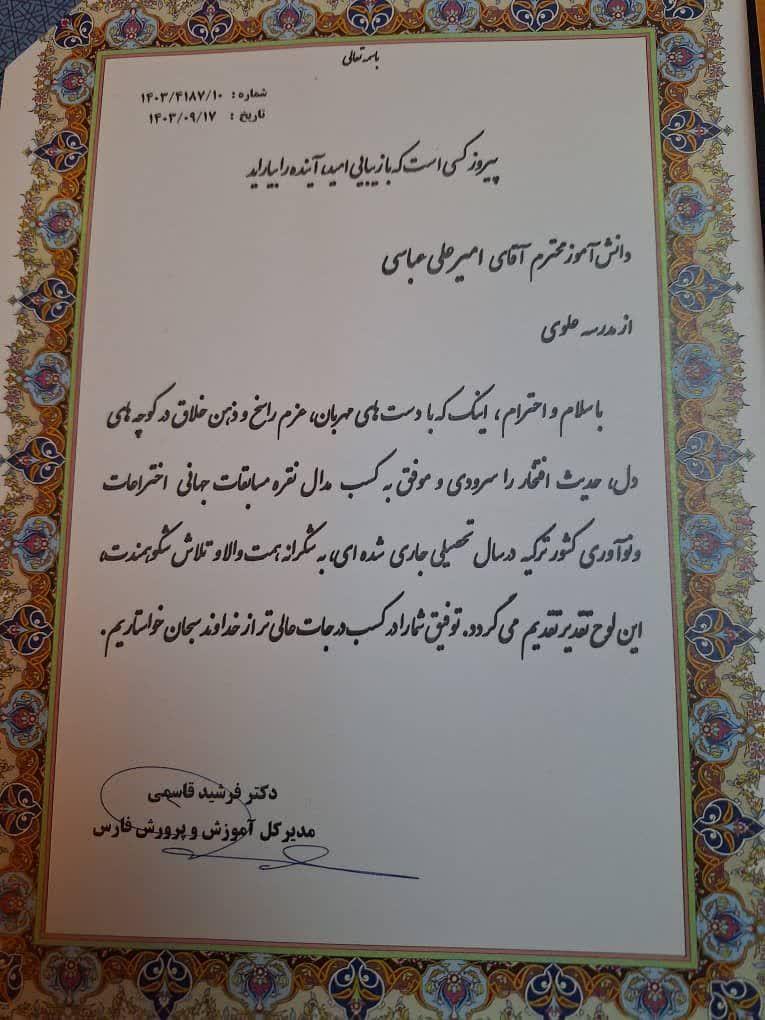 باسمه تعالی
شماره : ۱۴۰۳/۴۱۸۷/۱۰
تاریخ : ۱۴۰۳/۰۹/۱۷
پیروز کسی است که با زیبایی امید، آینده را بیاراید
دانش آموز محترم آقای امیرعلی عباسی
از مدرسه علوی
با سلام و احترام ، اینک که با دست های مهربان، عزم راسخ و ذهن خلاق در کوچه های
دل، حدیث افتخار را سرودی و موفق به کسب مدال نقره مسابقات جهانی اختراعات
و نوآوری کشور ترکیه در سال تحصیلی جاری شده ای، به شکرانه همت والا و تلاش شکوهمندت،
این لوح تقدیر تقدیم می گردد. توفیق شما را در کسب درجات عالی تر از خداوند سبحان خواستاریم.
دکتر فرشید قاسمی
مدیرکل آموزش و پرورش فارس